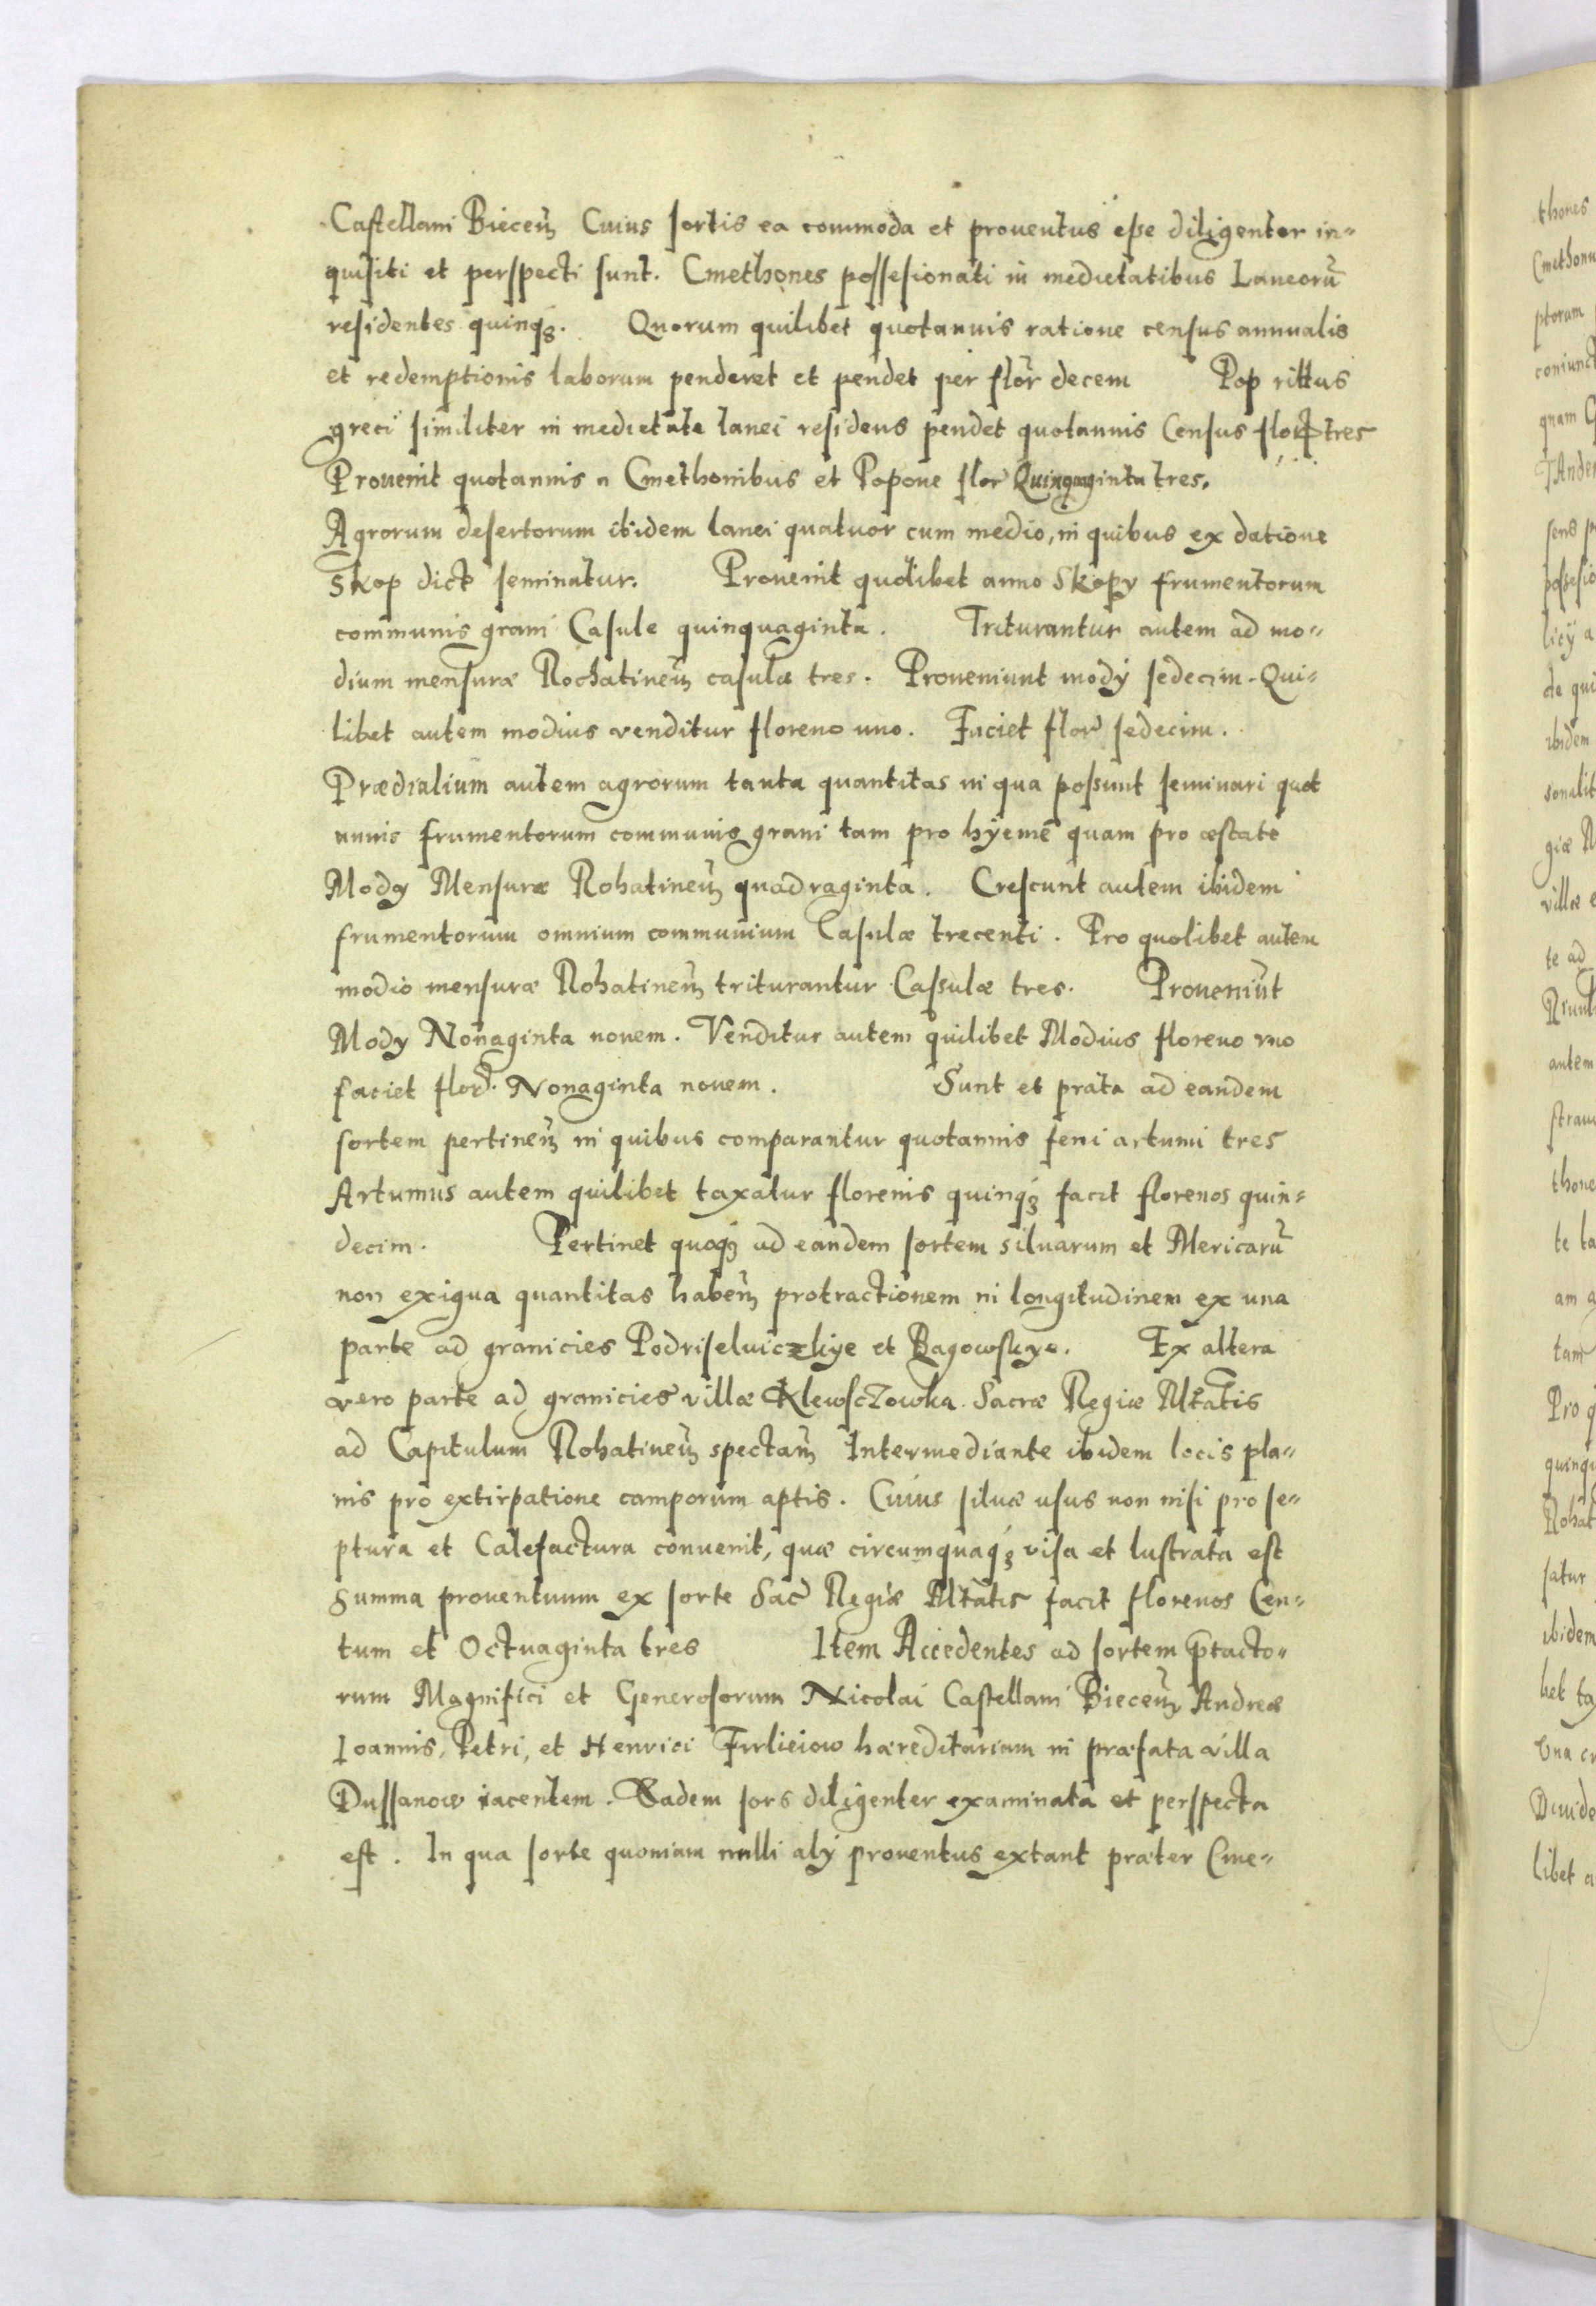 Castellani Biecen̄ Cuius sortis ea commoda et prouentus esse diligenter in=
quisiti et perspecti sunt. Cmethones possesionati in medietatibus Laneorū
residentes quinqꝫ. Quorum quilibet quotannis ratione census annualis
et redemptionis laborum penderet et pendet per flor̄ decem Pop rittus
greci similiter in medietate lanei residens pendet quotannis Census flor tres
Prouenit quotannis a Cmethonibus et Popone flor Quinquaginta tres.
Agrorum desertorum ibidem lanei quatuor cum medio, in quibus ex datione
Skop dict seminatur. Prouenit quolibet anno Skopy frumentorum
communis grani Casule quinquaginta. Triturantur autem ad mo=
dium mensuræ Rochatinen̄ casulæ tres. Proueniunt mody sedecim. Qui=
libet autem modius venditur floreno uno. Faciet flor sedecim.
Prædialium autem agrorum tanta quantitas in qua possunt seminari quot
annis frumentorum communis grani tam pro hÿeme quam pro æstate
Mody Mensuræ Rohatinen̄ quadraginta. Crescunt autem ibidem
frumentorum omnium communium Casulæ trecenti. Pro quolibet autem
modio mensuræ Rohatinen̄ triturantur Cassulæ tres. Proueniūt
Mody Nonaginta nouem. Venditur autem quilibet Modius floreno vno
faciet flor. Nonaginta nouem. Sunt et prata ad eandem
sortem pertinen̄ in quibus comparantur quotannis feni artumi tres
Artumus autem quilibet taxatur florenis quinqꝫ facit florenos quin=
decim. Pertinet quoqꝫ ad eandem sortem siluarum et Mericarū
non exigua quantitas haben̄ protractionem in longitudinem ex una
parte ad granicies Podriseluiczkÿe et Bagowskye. Ex altera
vero parte ad granicies villæ Klewsczowka Sacræ Regiæ Mtatis
ad Capitulum Rohatinen̄ spectan̄ Intermediante ibidem locis pla=
nis pro extirpatione camporum aptis. Cuius siluæ usus non nisi pro se=
ptura et Calefactura conuenit, quæ circumquaqꝫ visa et lustrata est
Summa prouentuum ex sorte Sac Regiæ Mtatis facit florenos Cen=
tum et Octuaginta tres Item Accedentes ad sortem p̄tacto=
rum Magnifici et Generosorum Nicolai Castellani Biecen̄ Andreæ
Ioannis, Petri, et Henrici Firlieiow hæreditariam in præfata villa
Dussanow iacentem. Eadem sors diligenter examinata et perspecta
est. In qua sorte quoniam nulli aly prouentus extant præter Cme=